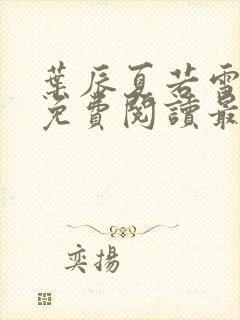 葉辰夏若雪
免費閱讀最
奕揚